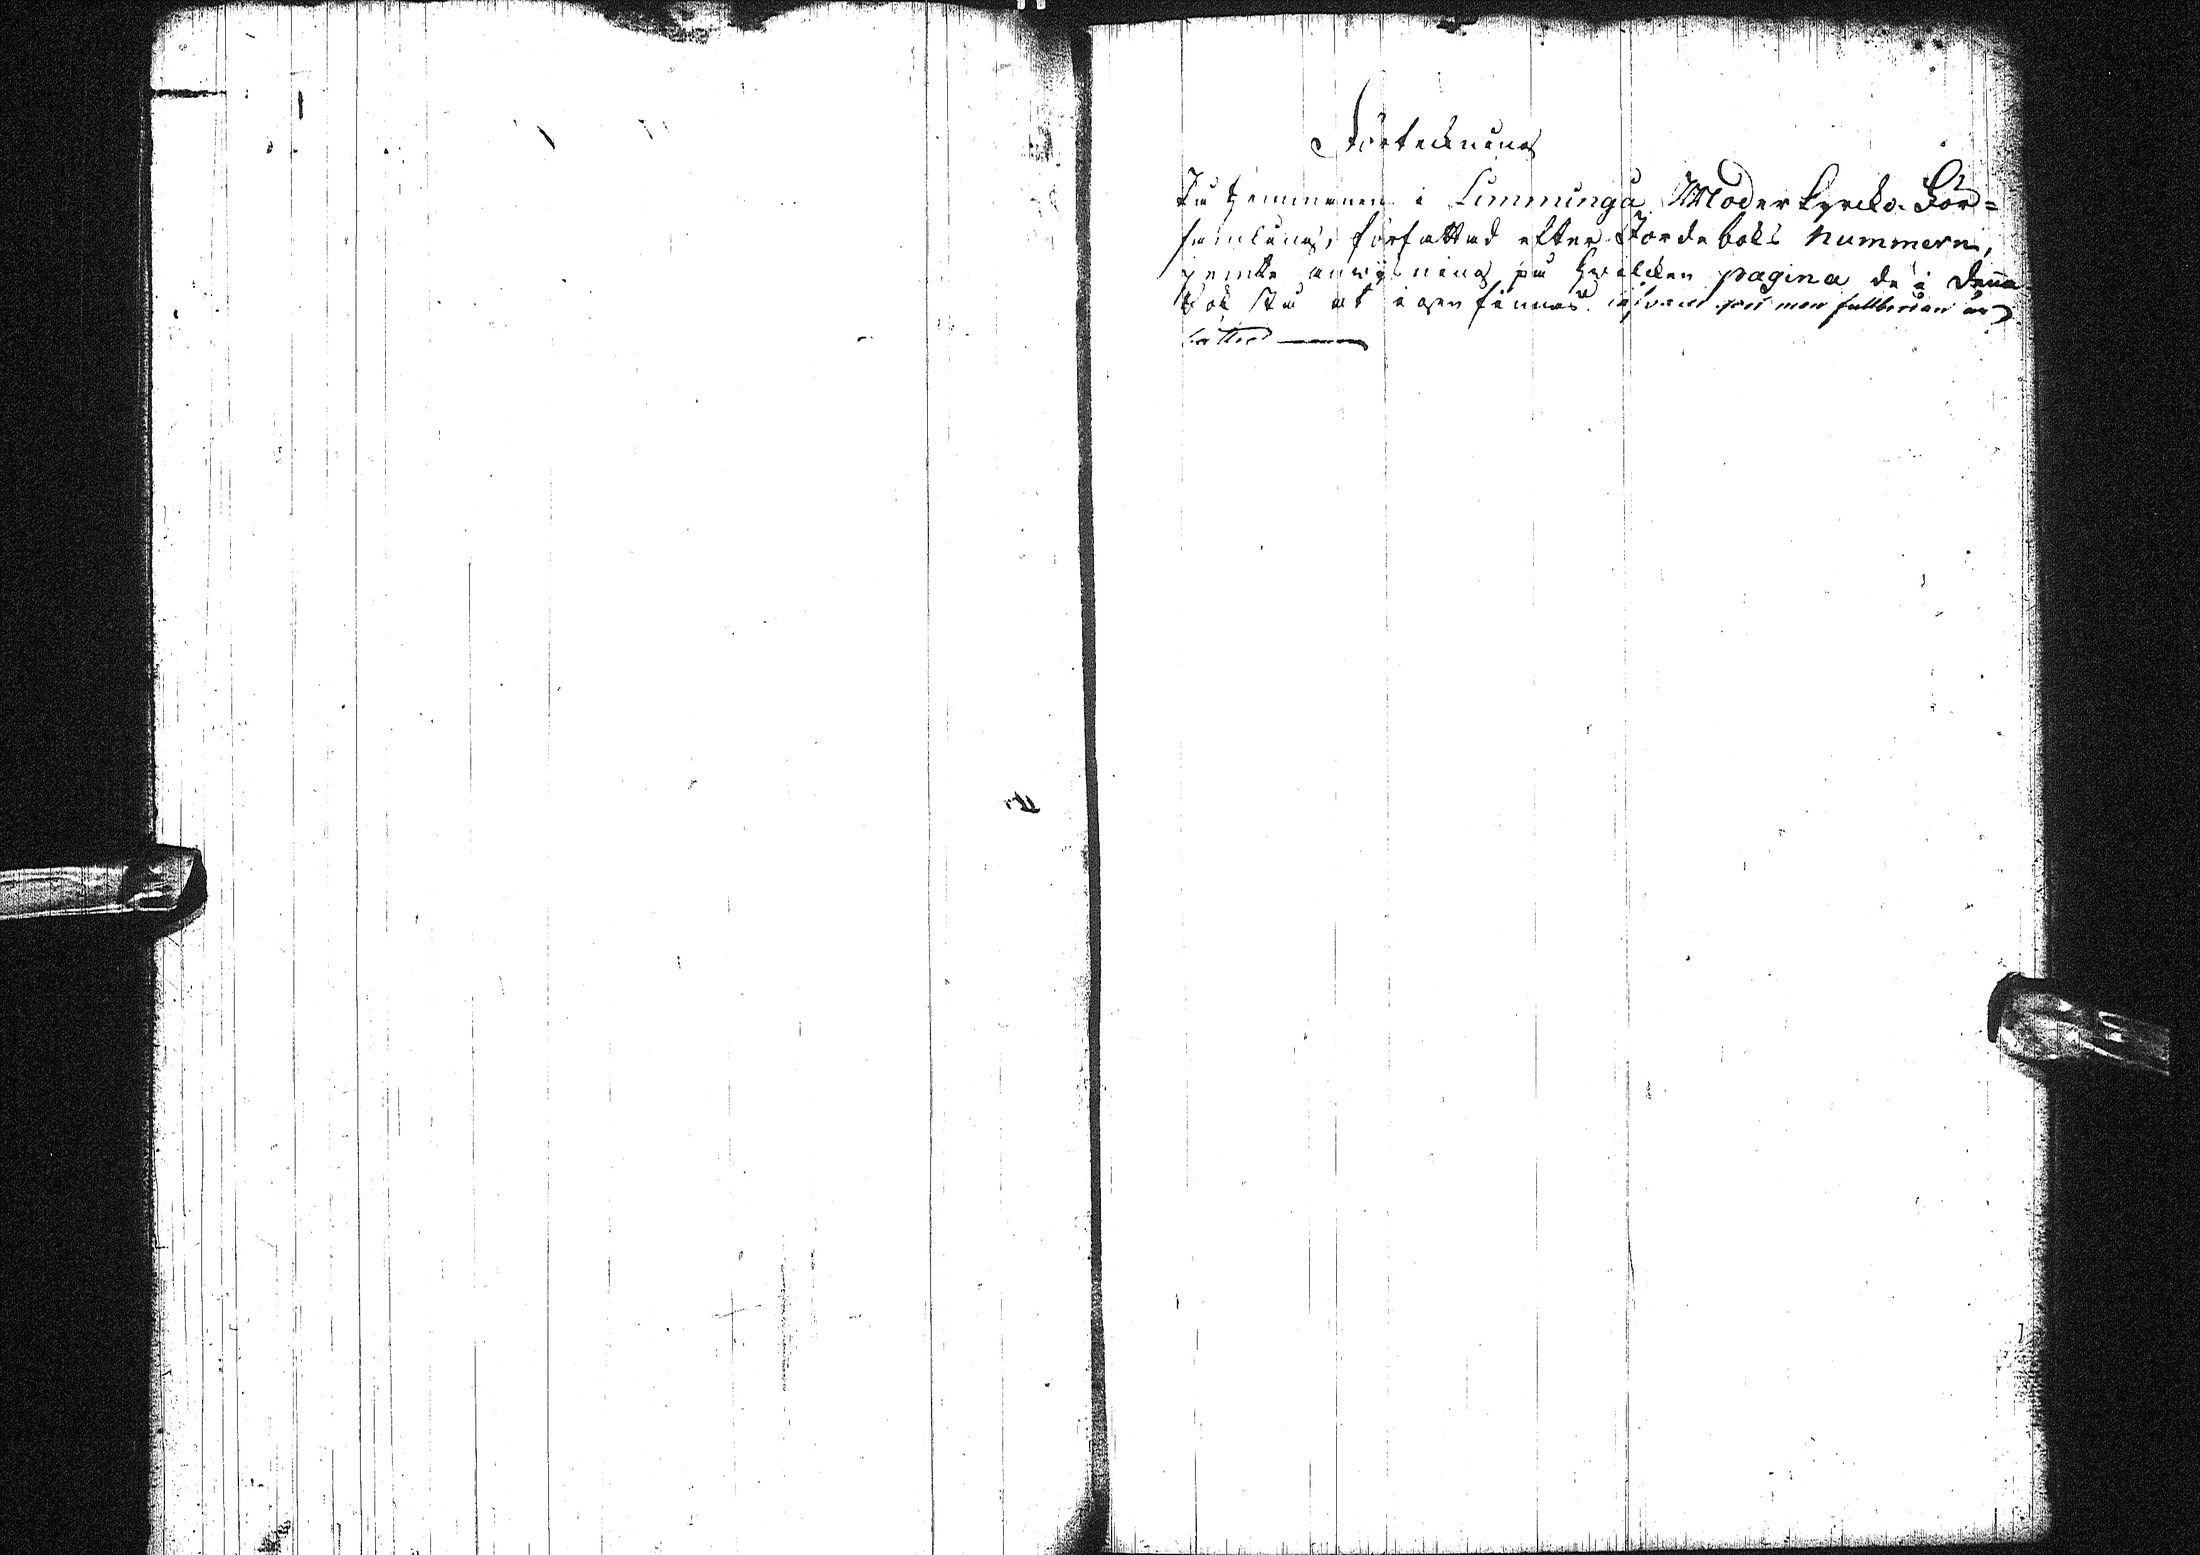 Förteckning
På Hemmanen i Limminga Moderkyrcko-För=
samling, författad efter Jordeboks Nummern,
jemte anvisning på hvilcken pagina de i denna
Bok stå at igenfinnas